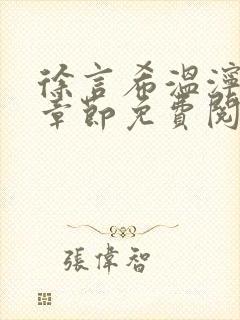 徐言希溫濘
章節免費閱
張偉智